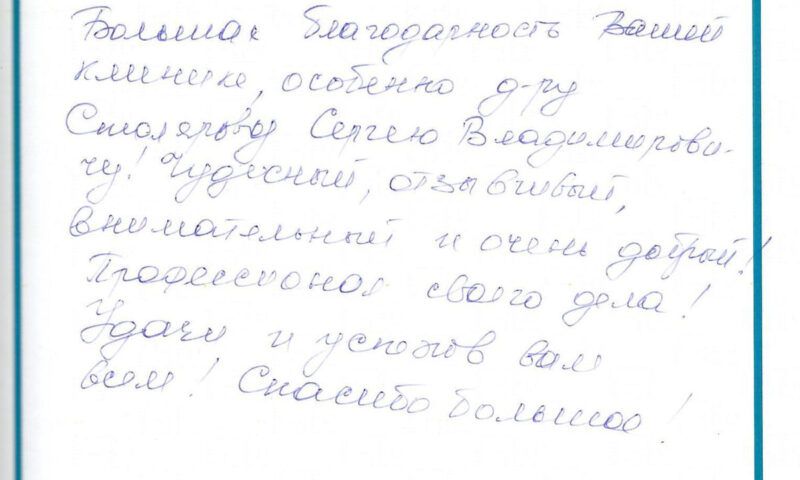 Большая благодарность Вашей
клинике, особенно д-ру
Столярову Сергею Владимирови-
чу! Чудесный, отзывчивый,
внимательный и очень добрый!
Профессионал своего дела!
Удачи и успехов вам
всем! Спасибо большое!